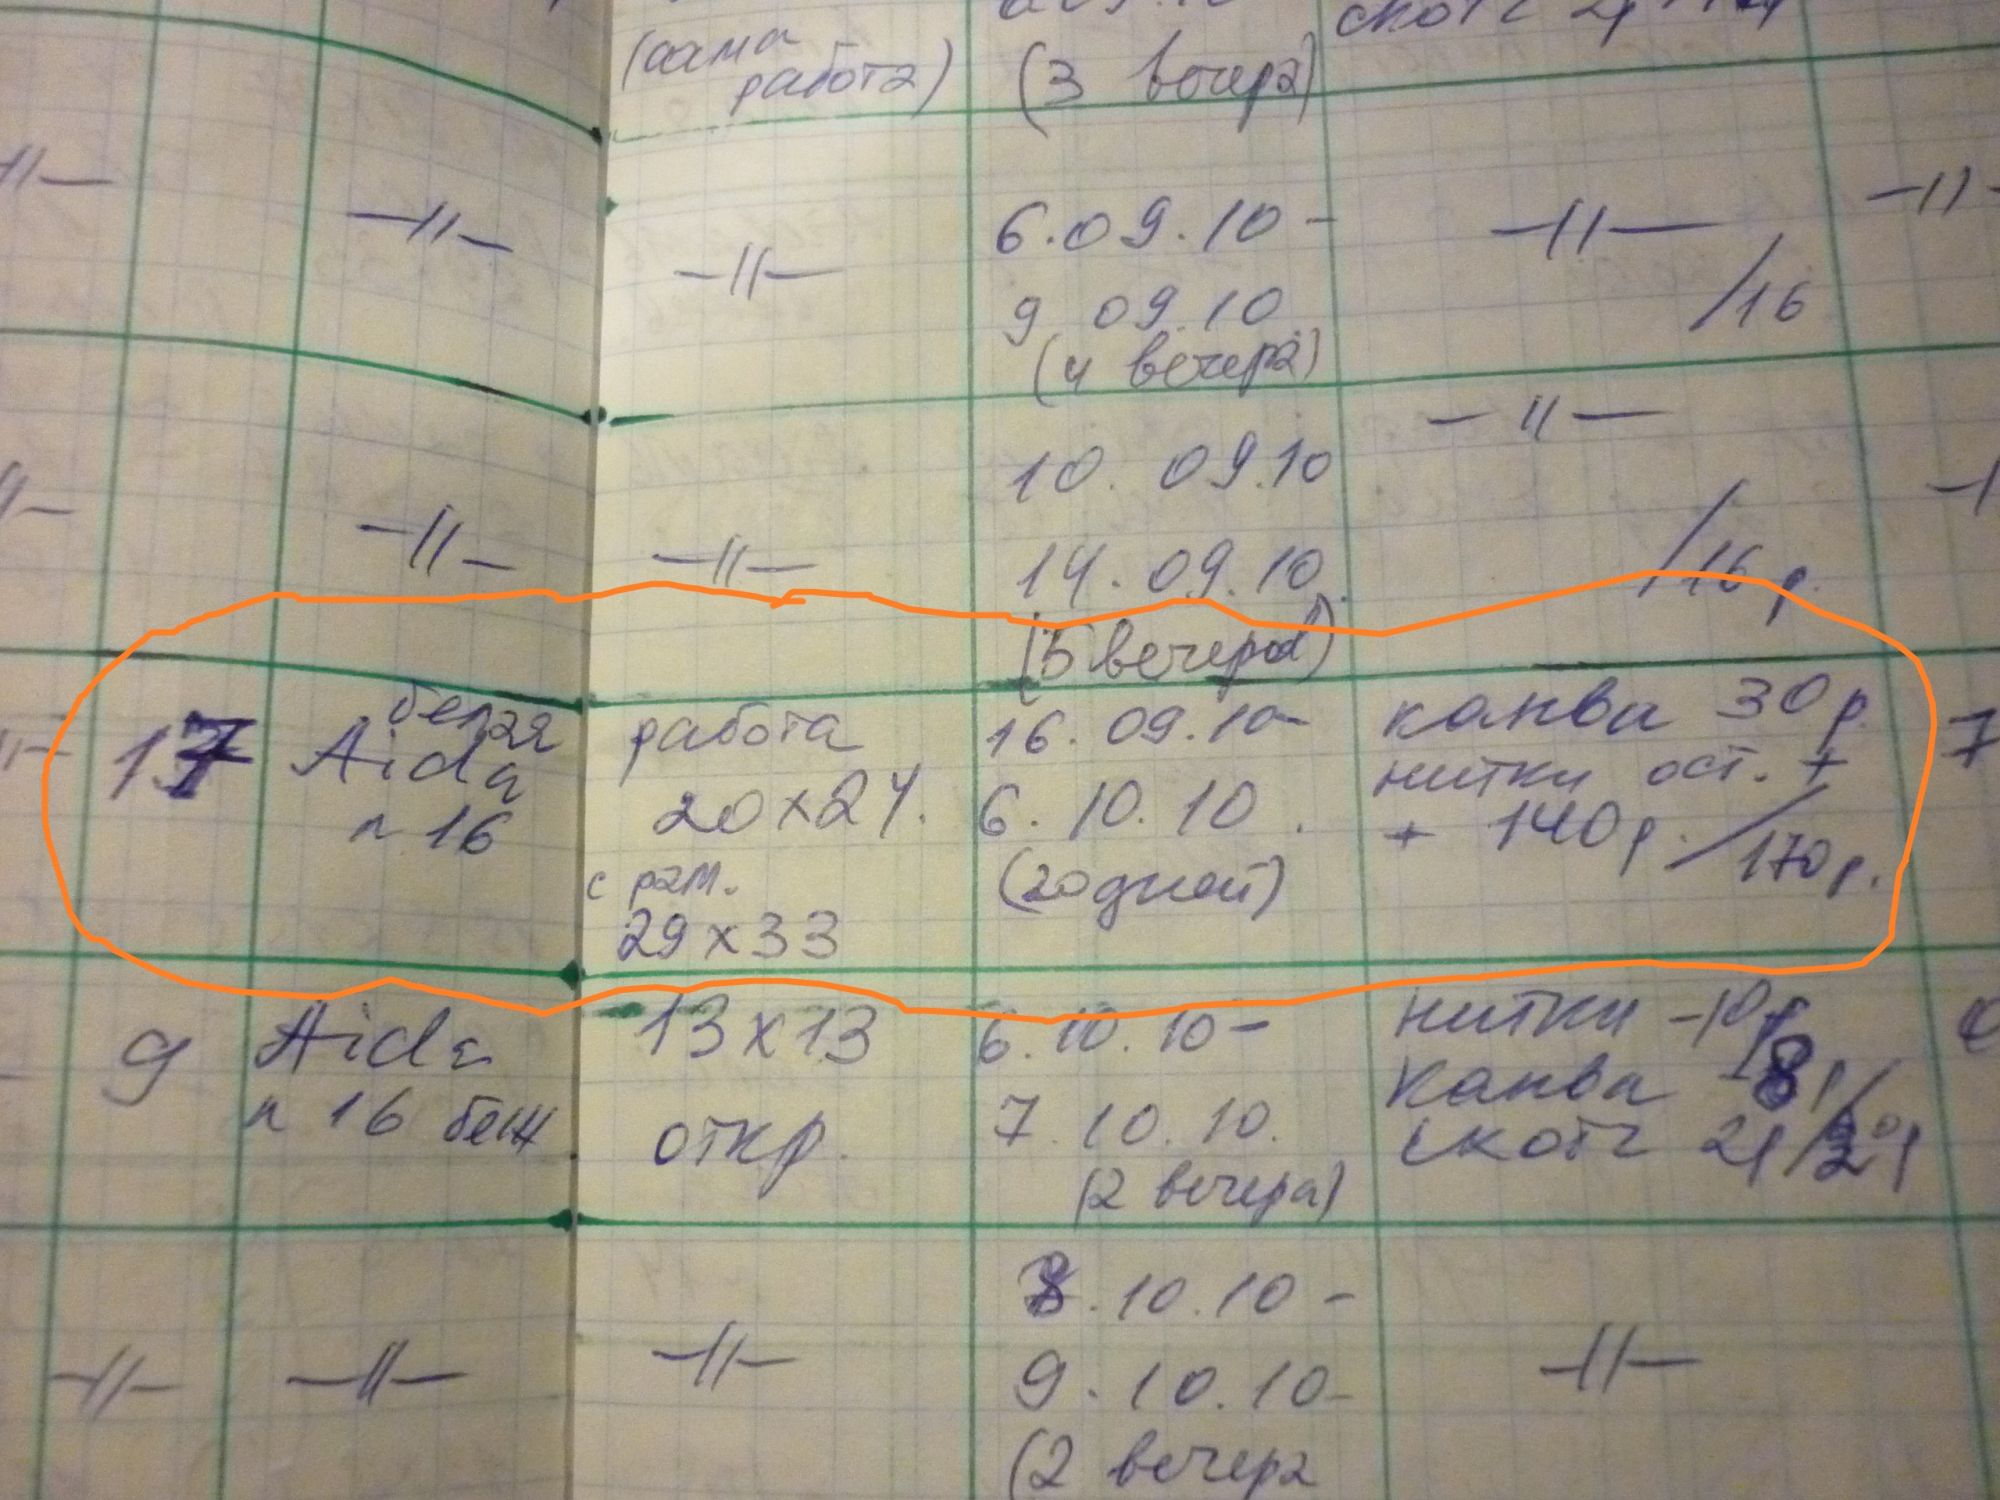 (сама
работа)
(3 вечера)
-//-
-//-
-//-
6.09.10-
9 09.10
(4 вечера)
-//-
/16
-//-
-//-
-//-
-//-
10. 09.10
14.09.10.
(5 вечеров)
-//-
/16 р.
-//-
17
белая
Aida
n 16
работа
20x24.
с рам.
29x33
16.09.10-
6.10.10.
(20 дней)
канва 30 р.
нитки ост. +
+ 140р./170р.
7
9
Aida
n 16 беж
13x13
откр.
6.10.10-
7.10.10.
(2 вечера)
нитки -10р
канва 8р/
скотч 2р/20р
-//-
-//-
-//-
8.10.10-
9.10.10-
(2 вечера
-//-